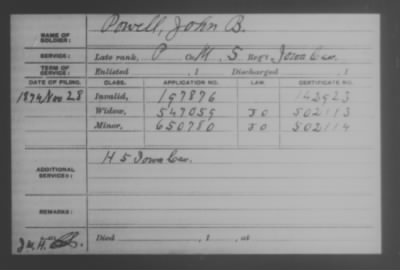 NAME OF SOLDIER: Powell, John B.
SERVICE: Late rank, P Co. M, 5 Reg't Iowa Cav.
TERM OF SERVICE: Enlisted , 1 Discharged , 1
DATE OF FILING. CLASS. APPLICATION NO. LAW. CERTIFICATE NO.
1874 Nov 28 Invalid, 197876 142923
Widow, 547059 502113
Minor, 650780 502114
ADDITIONAL SERVICES: H 5 Iowa Cav.
REMARKS:
Died , 1 , at